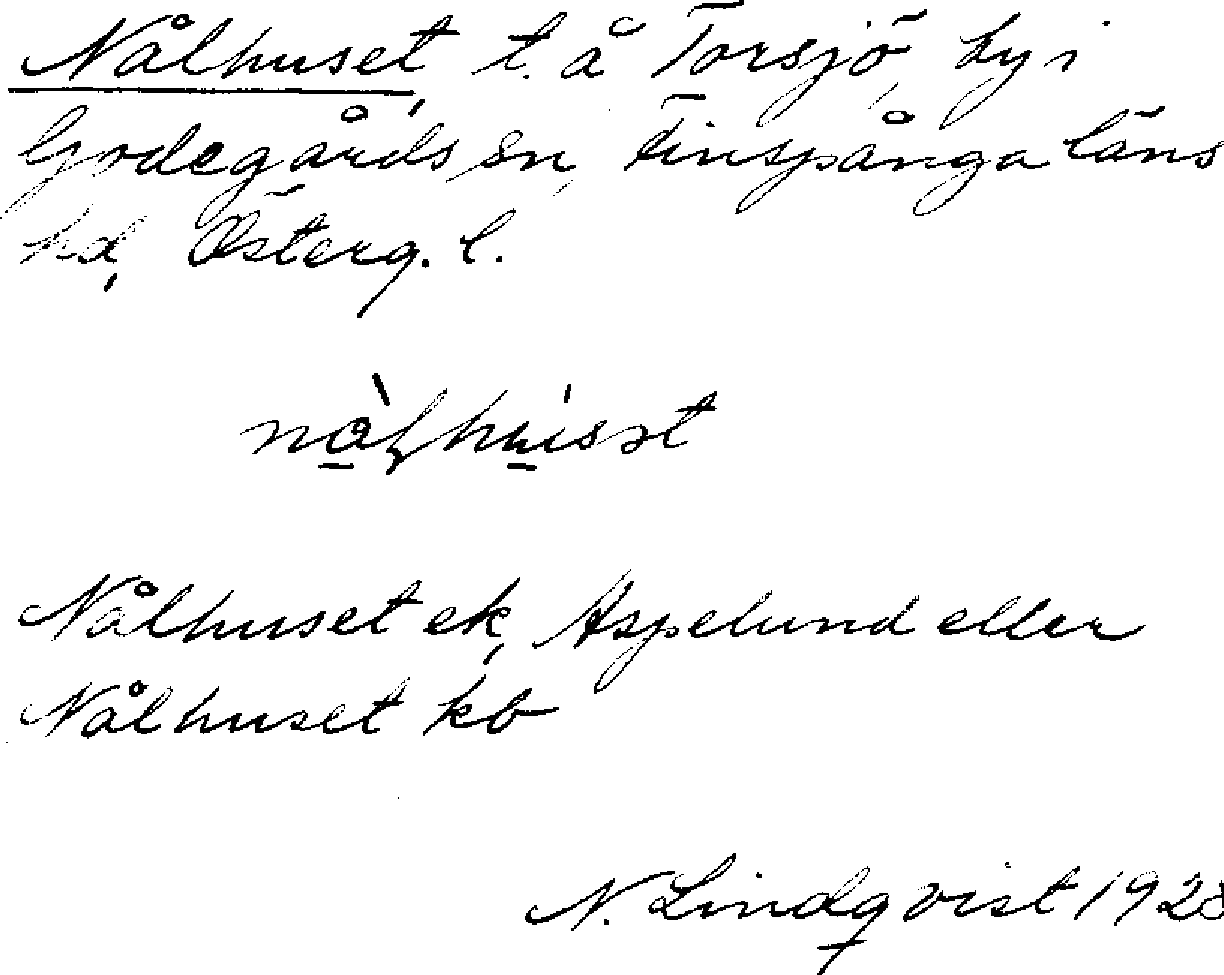 Nålhuset, t. å Torsjö, by i
Godegårds sn, Finspånga läns
hd, Österg. l.
Nålhuset ek, Aspelund eller
Nålhuset kb
N. Lindqvist 1928